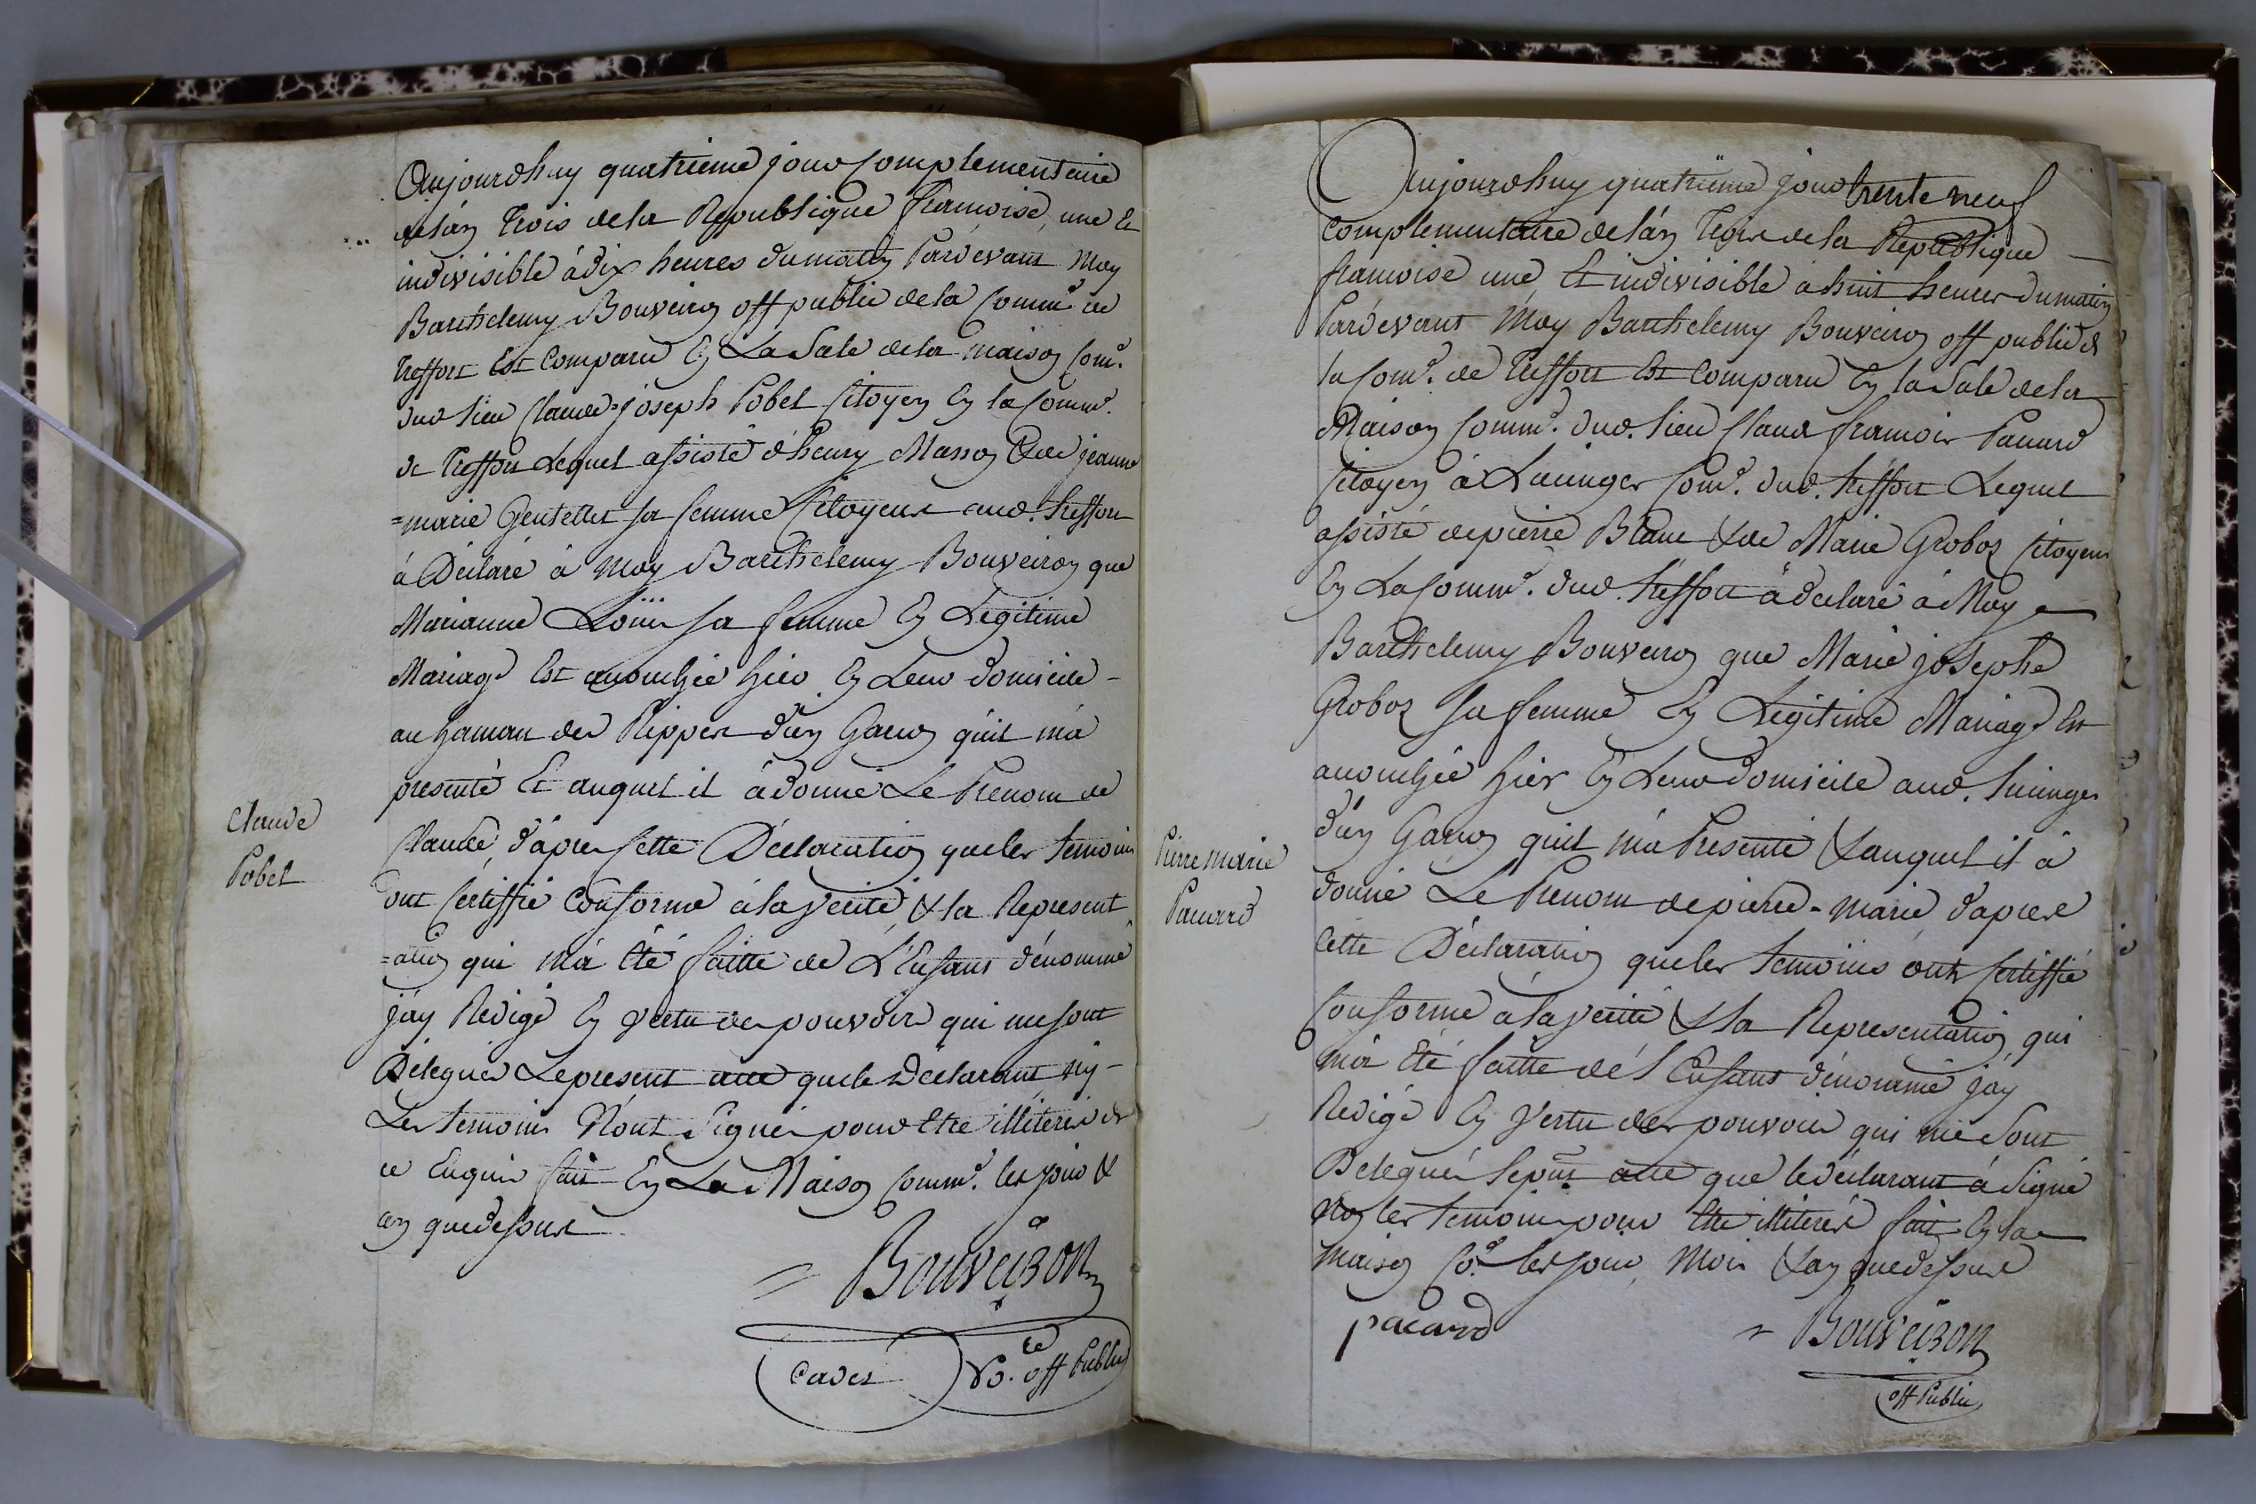 Aujourdhuy quatrieme jour Complementaire
de lán Trois de la Republique francoise, une Et
indivisible à dix heures du matin Pardevant Moy
Barthelemy Bouveiron off public de la Comm.e de
Treffort Est Comparu En La Sale de la maison Com.e
dud lieu Claude-joseph Pobel Citoyen En la Comm.e
de Treffort Lequel assisté d'henry Masson & de jeanne
=marie Gentellet sa femme Citoyens aud. treffort
à Déclaré à Moy Barthelemy Bouveiron que
Marianne sa femme En Legitime
Mariage Est accouchée hier En Leur domicile -
au hamau des Rippes d'un Garcon qu'il m'à
presenté Et auquel il à donné Le Prenom de
Claude
Pobel
Claude, d'aprés Cette Déclaration que les temoins
ont Certiffié Conforme à la verité & la Represent
=ation qui m'à été faitte de L'Enfant dénommé
j'ay Redigé En vertu des pouvoirs qui me sont
Délegués Le present acte que le Déclarant ny -
Les temoins N'ont Signés pour Etre illiterés de
ce Enquis fait En La Maison Comm.e les jour &
an que dessus
Bouveiron
Cadet
off Public
Aujourdhuy quatrieme jour trente neuf
Complementaire de lán Trois de la Republique -
francoise une Et indivisible à huit heures du matin
Pardevant Moy Barthelémy Bouveiron off public de
la Com.e de Treffort Est Comparu En la Sale de la
Maison Comm.e dud. lieu Claude francois Pacard
Citoyen à Lucinges Com.e dud. treffort Lequel
assisté de pierre Blanc & de Marie Groboz Citoyens
En La Comm.e dud. treffort à declaré à Moy
Barthelemy Bouveiron que Marie josephe
Groboz sa femme En Legitime Mariage Est
accouchée hier En Leur domicile aud. lucinges
Pierre marie
Pacard
d'un Garcon qu'il m'à Presenté & auquel il à
donné Le Prenom de pierre-marie, d'aprés
Cette Déclaration que les temoins ont Certiffié
Conforme à la verité & la Representation qui
m'à Eté faitte de l'Enfant dénommé j'ay
Redigé En vertu des pouvoirs qui me sont
Delegués le pnt acte que le déclarant à Signé
non les temoins pour Etre illiterés fait En la
maison Co.e les jour, Mois & an que dessus
pacard
Bouveiron
off Public